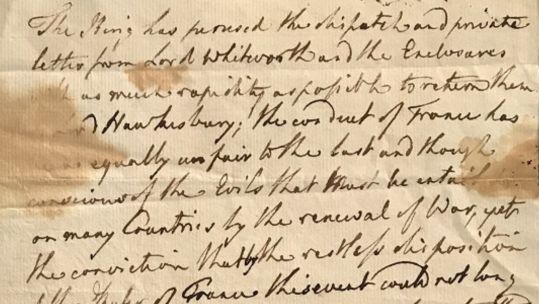 The King has perused the dispatch and private
letter from Lord Whitworth and the Enclosures
with as much rapidity as possible to return them
Lord Hawkesbury; the conduct of France has
equally unfair to the last and though
conscious of the Evils that must be entail
on many Countries by the renewal of War, yet
the conviction that by the restless disposition
of the Ruler of France this event could not long